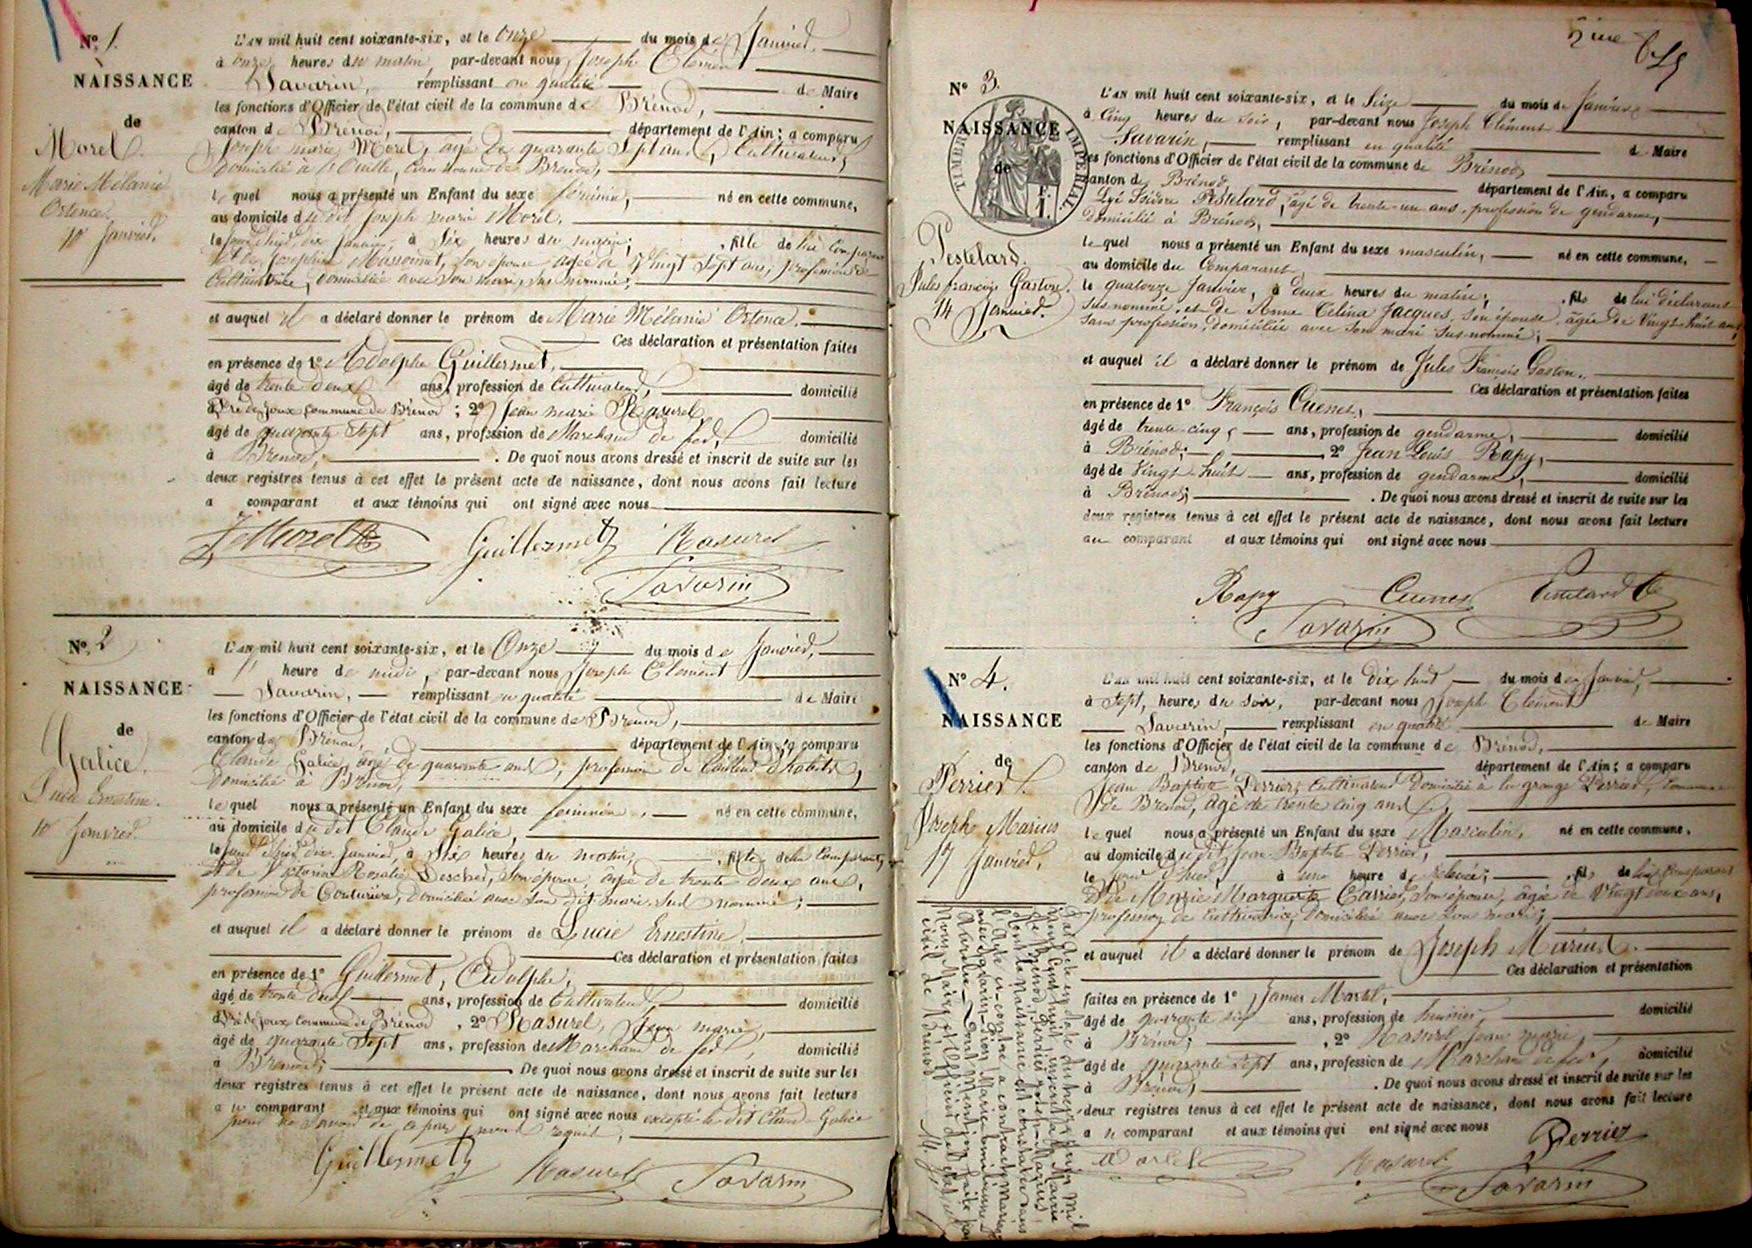 N° 1.
NAISSANCE
de
Morel.
Marie Mélanie
Ortence.
10 Janvier.
L'AN mil huit cent soixante-six, et le Onze du mois de Janvier,
à onze heures du matin par-devant nous Joseph Clément
Savarin, remplissant en qualité de Maire
les fonctions d'Officier de l'état civil de la commune de Brénod,
canton de Brénod, département de l'Ain; a comparu
Joseph marie Morel, agé de quarante Sept ans, Cultivateur,
Domicilié à commune de Brénod,
lequel nous a présenté un Enfant du sexe féminin, né en cette commune,
au domicile du dit Joseph marie Morel,
le jour d'hier dix Janvier, à Six heures du matin; , fille de lui comparant
et de Josephine Massonnet, son épouse agée de Vingt Sept ans, profession de
Cultivatrice, domiciliée avec son mari, sus nommé;
et auquel il a déclaré donner le prénom de Marie Mélanie Ortence.
Ces déclaration et présentation faites
en présence de 1° Adolphe Guillermet,
âgé de trente deux ans, profession de Cultivateur, domicilié
à Pré de Joux commune de Brénod ; 2° Jean marie Rasurel,
âgé de quarante Sept ans, profession de Marchand de fer, domicilié
à Brénod, . De quoi nous avons dressé et inscrit de suite sur les
deux registres tenus à cet effet le présent acte de naissance, dont nous avons fait lecture
a comparant et aux témoins qui ont signé avec nous
J Morel Guillermet Rasurel
Savarin
N° 2
NAISSANCE
de
Galice.
Lucie Ernestine.
10 Janvier.
L'AN mil huit cent soixante-six, et le Onze du mois de Janvier,
à 1 heure de midi, par-devant nous Joseph Clément
Savarin, remplissant en qualité de Maire
les fonctions d'Officier de l'état civil de la commune de Brénod,
canton de Brénod, département de l'Ain; a comparu
Claude Galice, agé de quarante ans, profession de tailleur d'habits,
Domicilié à Brénod,
lequel nous a présenté un Enfant du sexe féminin, né en cette commune,
au domicile du dit Claude Galice,
le jour d'hier dix Janvier, à Six heures du matin, , fille de lui comparant,
et de Victorine Rosalie Descher, son épouse agée de trente deux ans,
profession de Couturière, domiciliée avec son dit mari, Sus nommé;
et auquel il a déclaré donner le prénom de Lucie Ernestine,
Ces déclaration et présentation faites
en présence de 1° Guillermet, Adolphe,
âgé de trente deux ans, profession de Cultivateur, domicilié
à Pré de Joux commune de Brénod , 2° Rasurel, Jean marie,
âgé de quarante Sept ans, profession de Marchand de fer, domicilié
à Brénod; . De quoi nous avons dressé et inscrit de suite sur les
deux registres tenus à cet effet le présent acte de naissance, dont nous avons fait lecture
au comparant et aux témoins qui ont signé avec nous excepté le dit Claude Galice
pour ne savoir de ce requis;
Guillermet Rasurel Savarin
N° 3.
NAISSANCE
de
TIMBRE IMPERIAL
Pestelard.
Jules françois Gaston.
14 Janvier.
L'AN mil huit cent soixante-six, et le Seize du mois de Janvier
à Cinq heures du soir, par-devant nous Joseph Clément
Savarin, remplissant en qualité de Maire
les fonctions d'Officier de l'état civil de la commune de Brénod
canton de Brénod, département de l'Ain, a comparu
Isidore Pestelard, âgé de trente-un ans, profession de gendarme,
domicilié à Brénod,
lequel nous a présenté un Enfant du sexe masculin, né en cette commune,
au domicile du Comparant,
le quatorze Janvier, à deux heures du matin; , fils de lui déclarant
sus nommé, et de Anne Célina Jacques, son épouse, âgée de Vingt-huit ans,
sans profession, domiciliée avec son mari sus-nommé;
et auquel il a déclaré donner le prénom de Jules François Gaston.
Ces déclaration et présentation faites
en présence de 1° François Cuenet,
âgé de trente-cinq, ans, profession de gendarme, domicilié
à Brénod; , 2° Jean-Louis Rapy,
âgé de Vingt-huit ans, profession de gendarme, domicilié
à Brénod; . De quoi nous avons dressé et inscrit de suite sur les
deux registres tenus à cet effet le présent acte de naissance, dont nous avons fait lecture
au comparant et aux témoins qui ont signé avec nous
Rapy Cuenet Pestelard
Savarin
N° 4.
NAISSANCE
de
Perrier.
Joseph Marius
17 Janvier.
L'AN mil huit cent soixante-six, et le dix huit du mois de Janvier,
à Sept, heures du soir, par-devant nous Joseph Clément
Savarin, remplissant en qualité de Maire
les fonctions d'Officier de l'état civil de la commune de Brénod,
canton de Brénod, département de l'Ain; a comparu
Jean Baptiste Perrier, Cultivateur Domicilié à la grange Perrier, Commune
de Brénod, agé de trente cinq ans,
lequel nous a présenté un Enfant du sexe Masculin, né en cette commune,
au domicile du dit Jean Baptiste Perrier,
le jour d'hier, à une heure de relevée; , fils de lui comparant
et de Marie Marguerite Carrier, son épouse, âgée de Vingt deux ans,
profession de Cultivatrice, Domiciliée avec son mari;
et auquel il a déclaré donner le prénom de Joseph Marius.
Ces déclaration et présentation
faites en présence de 1° Martel,
âgé de quarante six ans, profession de huissier, domicilié
à Brénod; , 2° Rasurel Jean marie,
âgé de quarante sept ans, profession de Marchand de fer, domicilié
à Brénod, . De quoi nous avons dressé et inscrit de suite sur les
deux registres tenus à cet effet le présent acte de naissance, dont nous avons fait lecture
a u comparant et aux témoins qui ont signé avec nous Perrier
Martel Rasurel
Savarin